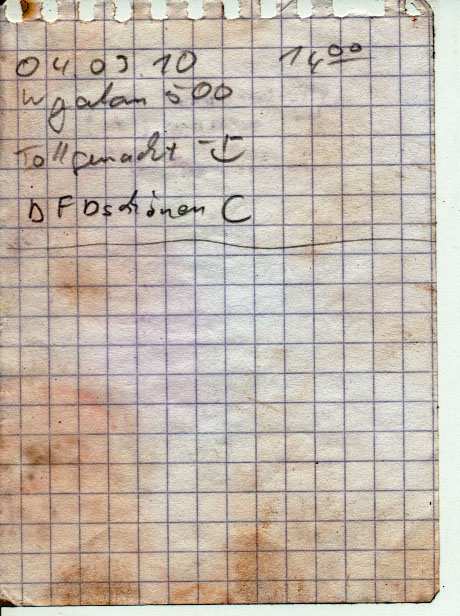 04.03.10 14⁰⁰
wgalan 500
Toll gemacht
DFDschönen C